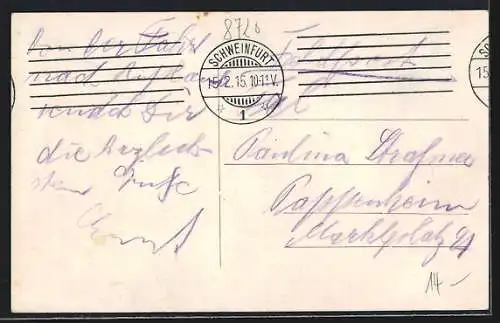 8720
Von der Fahrt
nach
sendet Dir
die herzlich
sten Grüße
Ernst
SCHWEINFURT
15.2.15.10-11V.
1
Feldpost
Paulina
Pappenheim
Marktplatz
14-